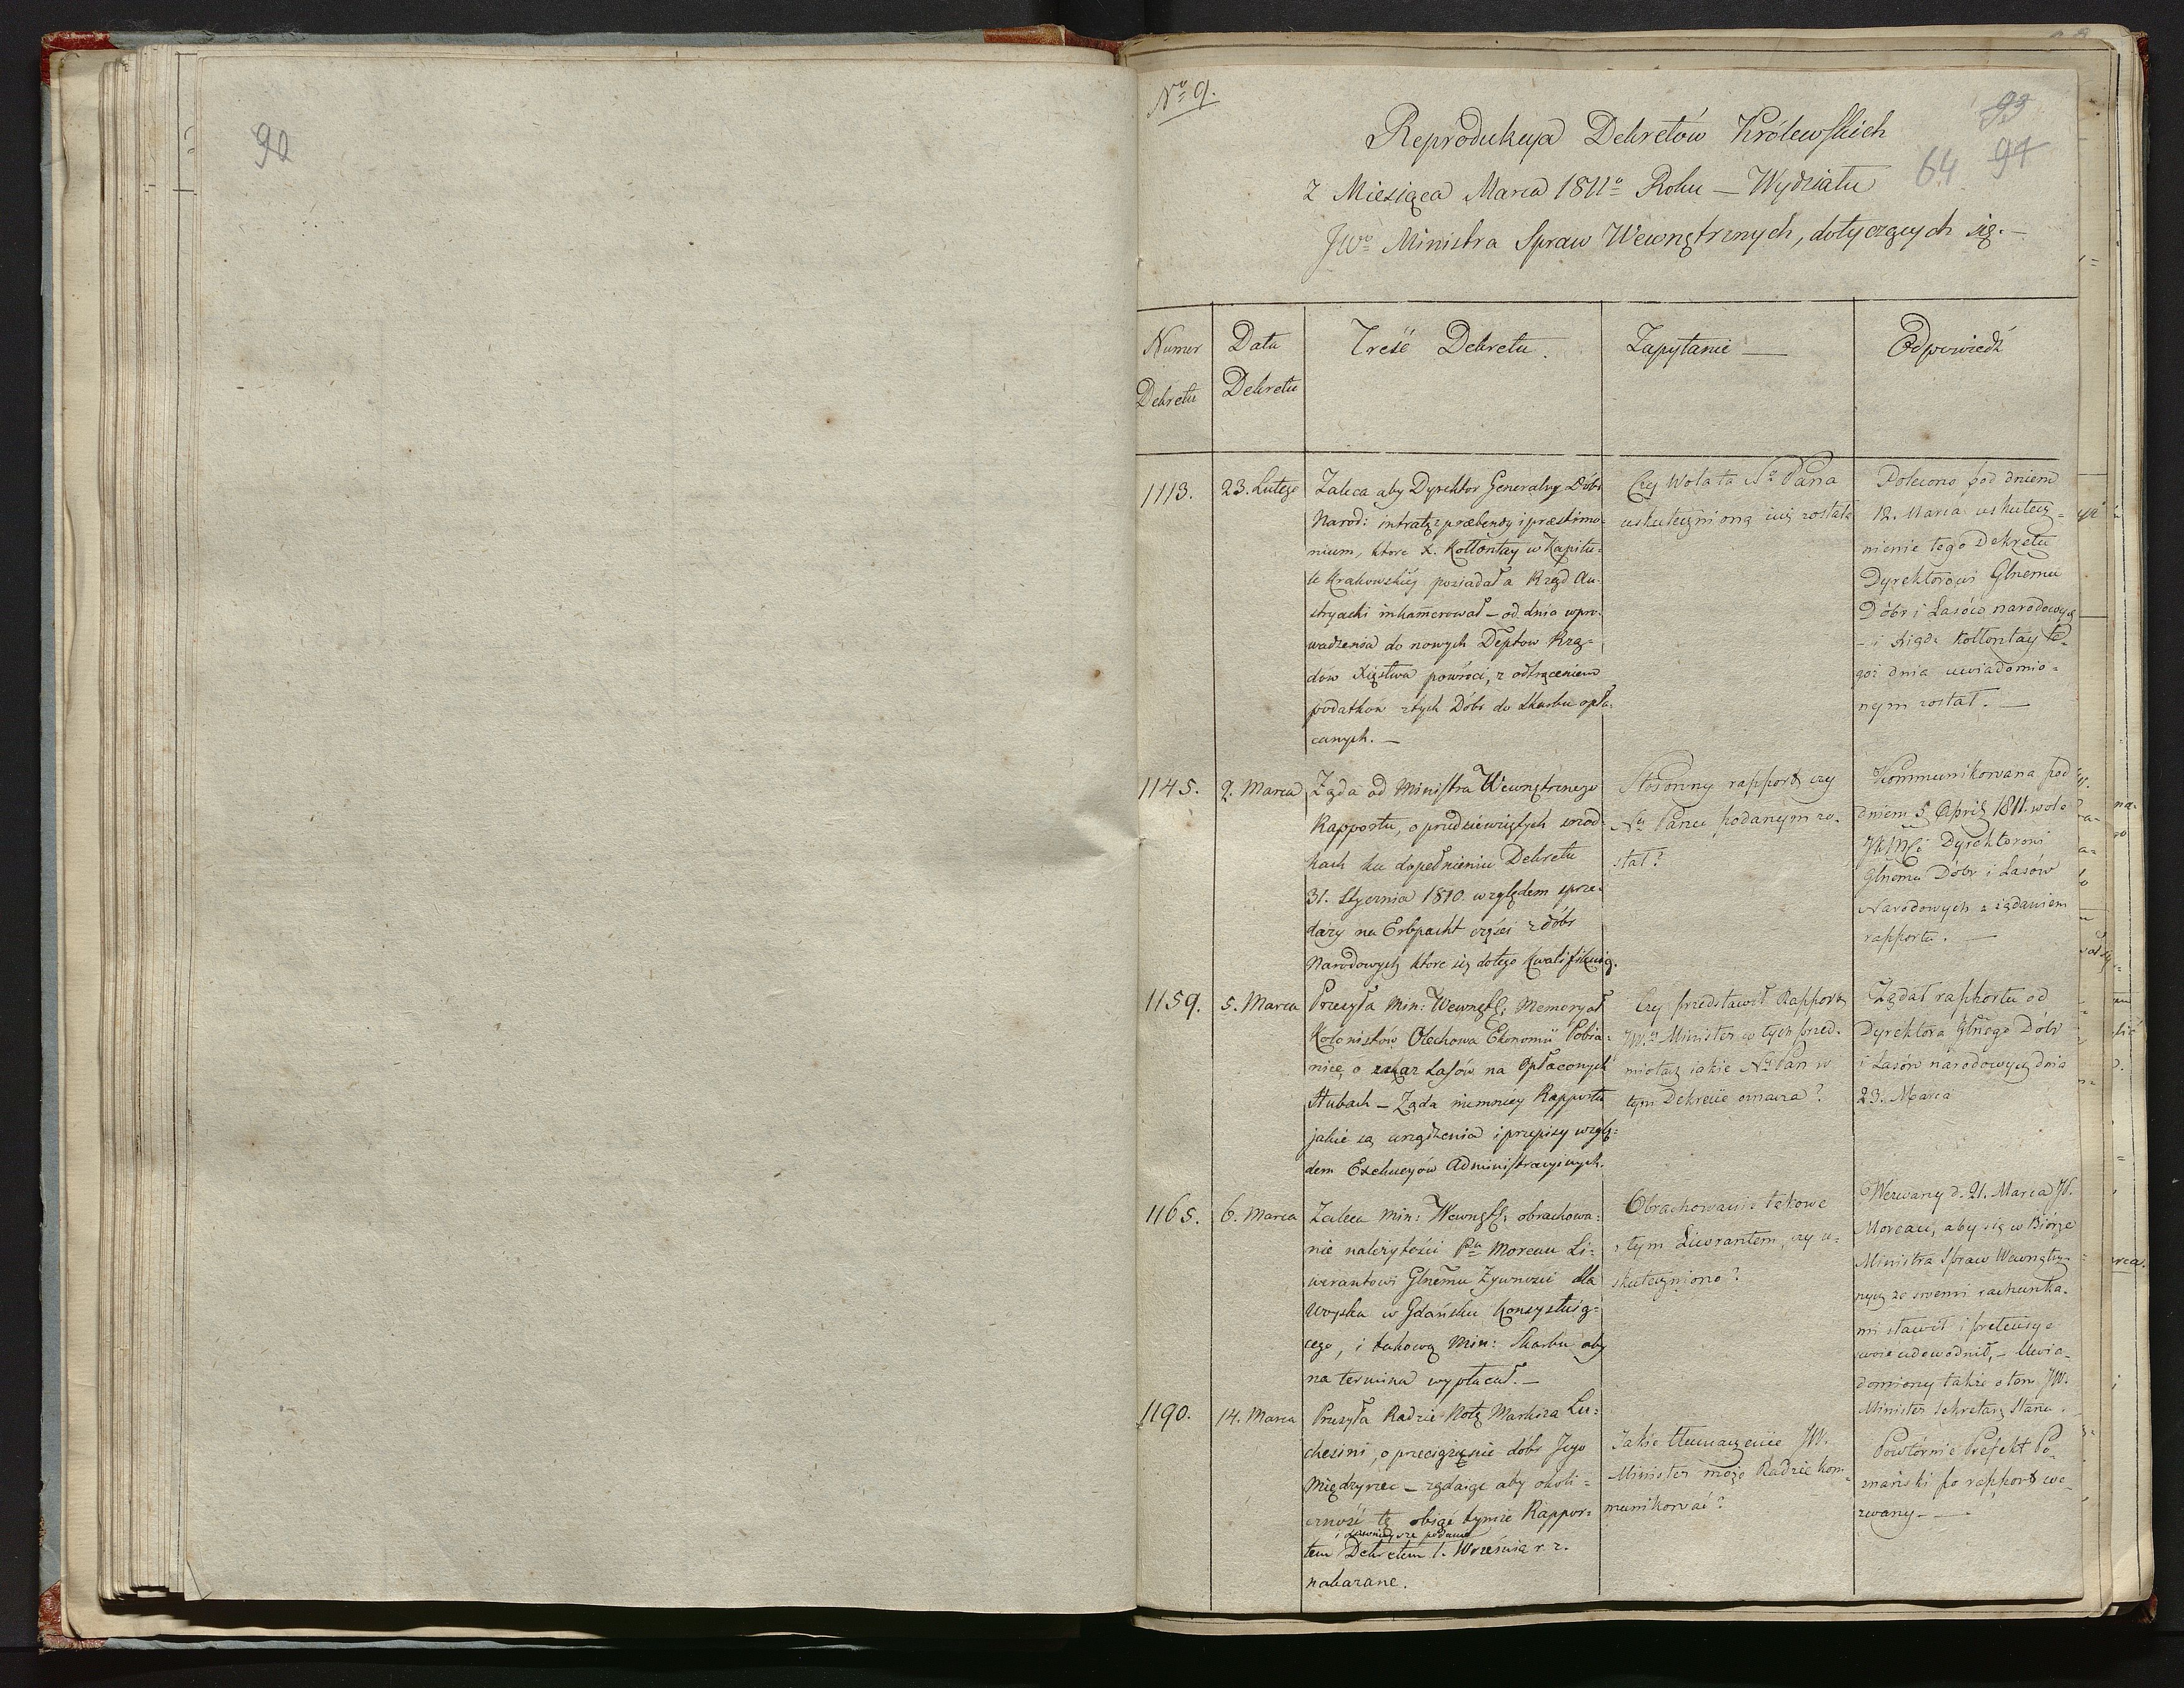 92
Nro 9.
93
64 94
Reprodukcya Dekretów Królewskich
z Miesiąca Marca 1811o Roku — Wydziału
JWo Ministra Spraw Wewnętrznych, dotyczących się. —
Numer
Dekretu
Data
Dekretu
Treść Dekretu.
Zapytanie —
Odpowiedź
1113.
23. Lutego
Zaleca aby Dyrektor Generalny Dóbr
Narod: intratę z præbendy i præstimo-
nium, które X. Kołłontay w Kapitu-
le Krakowskiéy posiadał a Rząd Au-
stryacki inkamerował — od dnia wpro-
wadzenia do nowych Deptow Rzą-
dów Xięstwa powrócił, z odtrąceniem
podatkow z tych Dóbr do Skarbu opła-
canych. —
Czy Wola ta No Pana
uskutecznioną iuż została
Polecono pod dniem
12. Marca uskutecz-
nienie tego Dekretu
Dyrektorowi Glnemu
Dóbr i Lasów narodowych
— i Xiądz Kołłontay te-
goż dnia uwiadomio-
nym został. —
1145.
2. Marca
Żąda od Ministra Wewnętrznego
Rapportu, o przedsięwziętych srod-
kach ku dopełnieniu Dekretu
31. Stycznia 1810. względem sprze-
daży na Erbpacht części z dóbr
Narodowych które się do tego kwalifikuią.
Stosowny rapport czy
Nu Panu podanym zo-
stał?
Kommunikowana pod
dniem 5 April 1811. wola
JKMci Dyrektorowi
Glnemu Dóbr i Lasów
Narodowych z żądaniem
rapportu. —
1159.
5. Marca
Przesyła Min: Wewnętr: Memoryał
Kolonistów Olechowa Ekonomii Pobia-
nice, o zakaz Lasów na Opłaconych
Hubach — Żąda niemniey Rapportu
jakie są urządzenia i przepisy wzglę-
dem Exekucyów Administracyinych.
Czy przedstawił Rapport
JW. Minister w tych przed-
miotach iakie Ny Pan w
tym Dekrecie oznacza?
Żądał rapportu od
Dyrektora Glnego Dóbr
i Lasów narodowych dnia
23. Marca
1165.
6. Marca
Zaleca Min: Wewnętr: obrachowa-
nie należytości Pu Moreau Li-
werantowi Glnemu Żywności dla
woyska w Gdańsku konsystuią-
cego, i takową Min: Skarbu aby
na termina wypłacał. —
Obrachowanie takowe
z tym Liwrantem, czy u-
skutecznione?
Wezwany d. 21. Marca JP.
Moreau, aby się w Biórze
Ministra Spraw Wewnętrz-
nych ze swemi rachunka-
mi stawił i pretensye
swoie udowodnił, — Uwia-
domiony także o tem JW.
Minister Sekretarz Stanu.
1190.
14. Marca
Przesyła Radzie Notę Markiza Lu-
chesini, o przeciążenie dóbr Jego
Międzyrzec — żądaiąc aby okoli-
czność tę obiąć tymże Rappor-
i dawniejsze podanie
tem Dekretem 1. Września r. z.
nakazane.
Jakie tłumaczenie JW.
Minister może Radzie kom-
munikować?
Powtórnie Prefekt Po-
znański po rapport we-
zwany. —